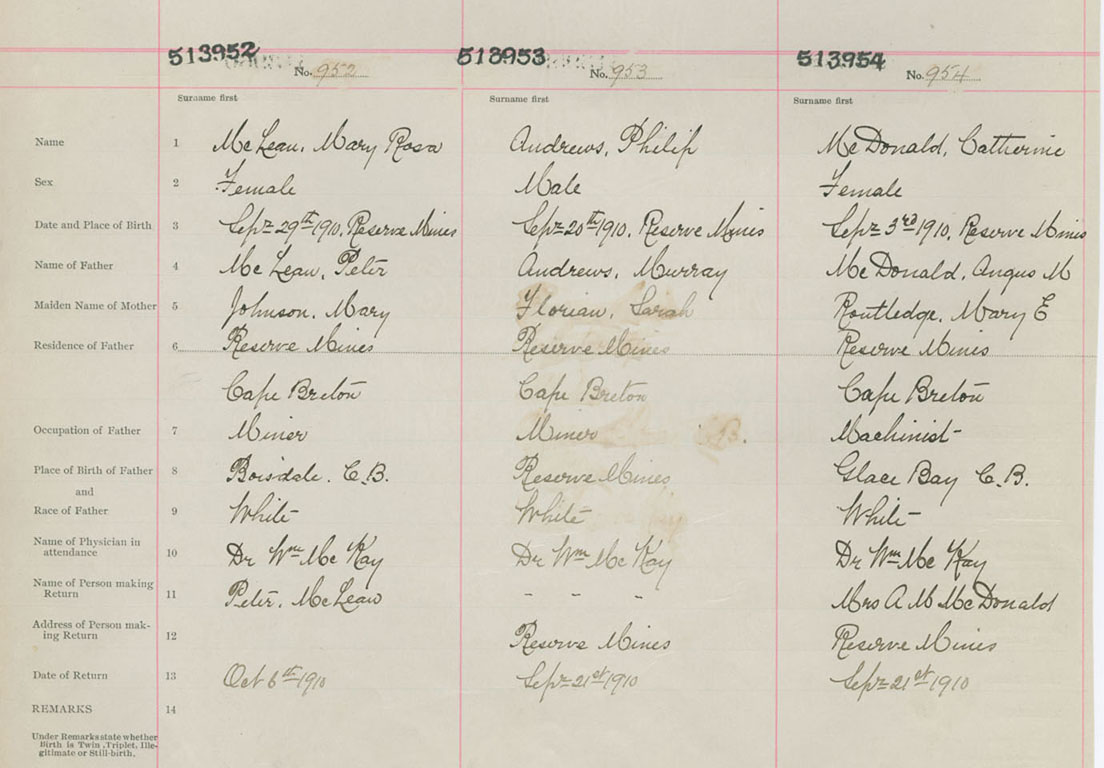 513952 513953 513954
No. 952 No. 953 No. 954
Surname first Surname first Surname first
Name 1 McLean, Mary Rosa Andrews, Philip McDonald, Catherine
Sex 2 Female Male Female
Date and Place of Birth 3 Sept 29th 1910, Reserve Mines Sept 20th 1910, Reserve Mines Sept 3rd 1910, Reserve Mines
Name of Father 4 McLean, Peter Andrews, Murray McDonald, Angus M
Maiden Name of Mother 5 Johnson, Mary Florian, Sarah Routledge, Mary E
Residence of Father 6 Reserve Mines Reserve Mines Reserve Mines
Cape Breton Cape Breton Cape Breton
Occupation of Father 7 Miner Miner Machinist
Place of Birth of Father 8 Boisdale. C.B. Reserve Mines Glace Bay C.B.
and
Race of Father 9 White White White
Name of Physician in
attendance 10 Dr Wm McKay Dr Wm McKay Dr Wm McKay
Name of Person making
Return 11 Peter. McLean - - - Mrs A M McDonald
Address of Person mak-
ing Return 12 Reserve Mines Reserve Mines
Date of Return 13 Oct 6th 1910 Sept 21st 1910 Sept 21st 1910
REMARKS 14
Under Remarks state whether
Birth is Twin, Triplet, Ille-
gitimate or Still-birth.